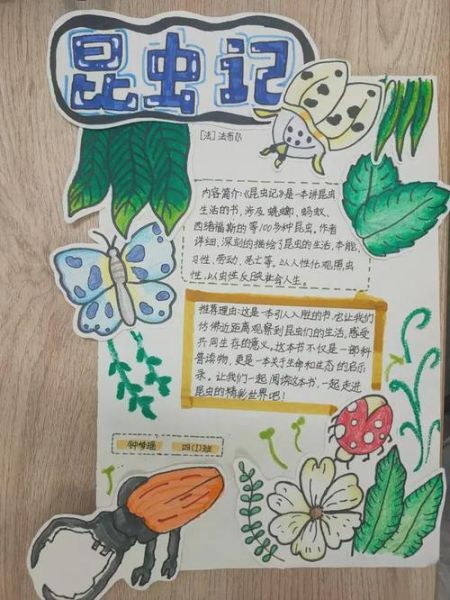 昆虫记
[法] 法布尔
内容简介:《昆虫记》是一本讲昆虫
生活的书,涉及蜣螂、蚂蚁、
西绪福斯的等100多种昆虫。作者
详细、深刻的描绘了昆虫的生活,本能、
习性、劳动、死亡等。以人性化观照虫
性,以虫性反映社会人生。
推荐理由:这是一本引人入胜的书,它让我们
仿佛近距离观察到昆虫们的生活,感受
共同生存的意义。这本书不仅是一部科
普读物,更是一本关于生命和生态的启示
录。让我们一起阅读这本书,一起走进
昆虫的精彩世界吧!
钟梦瑶 四(1)班